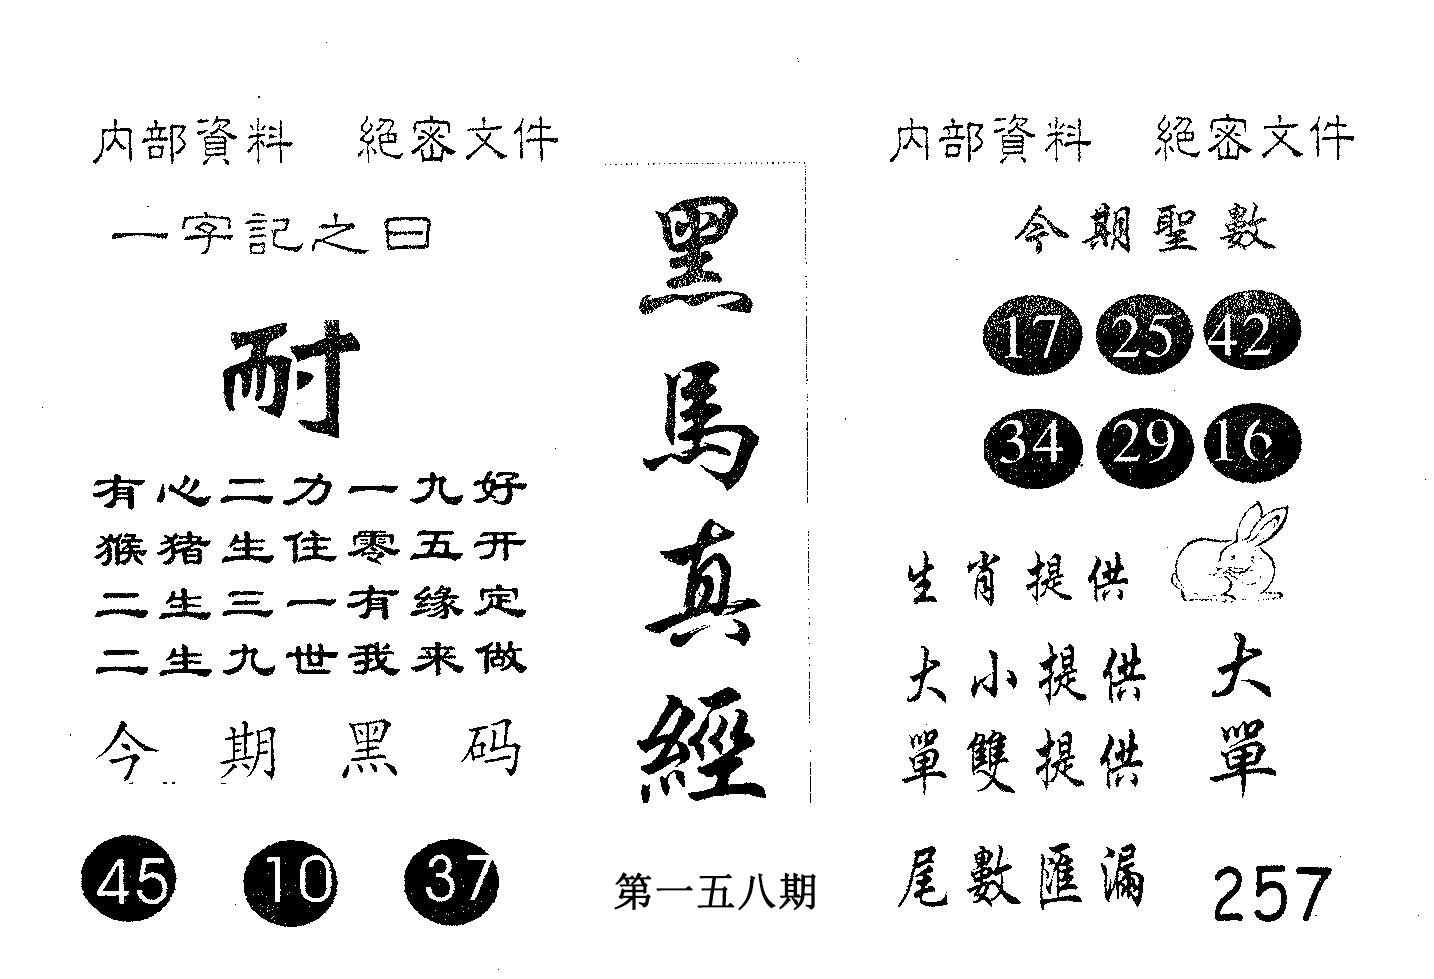 内部資料 絕密文件
一字記之曰
耐
有心二力一九好
猴猪生住零五开
二生三一有缘定
二生九世我来做
今期黑码
45 10 37
黑馬真經
第一五八期
内部資料 絕密文件
今期聖數
17 25 42
34 29 16
生肖提供
大小提供 大
單雙提供 單
尾數匯漏 257